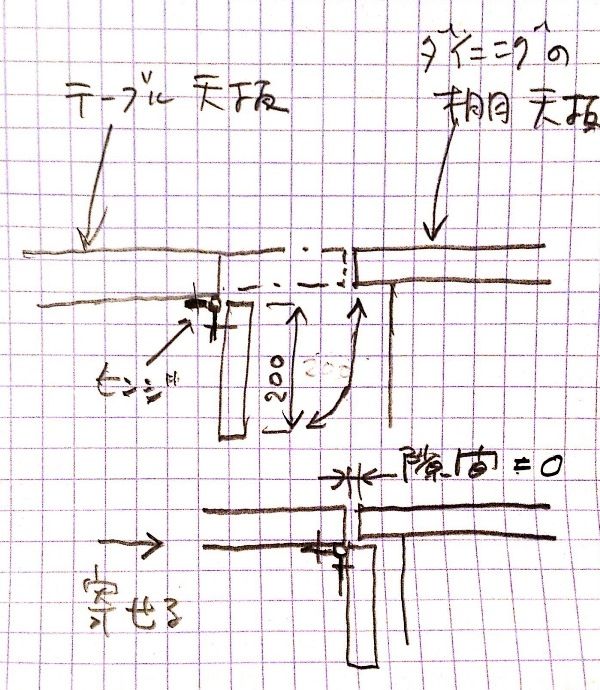 テーブル天板
ダイニングの
棚天板
ヒンジ
200
200
隙間=0
寄せる